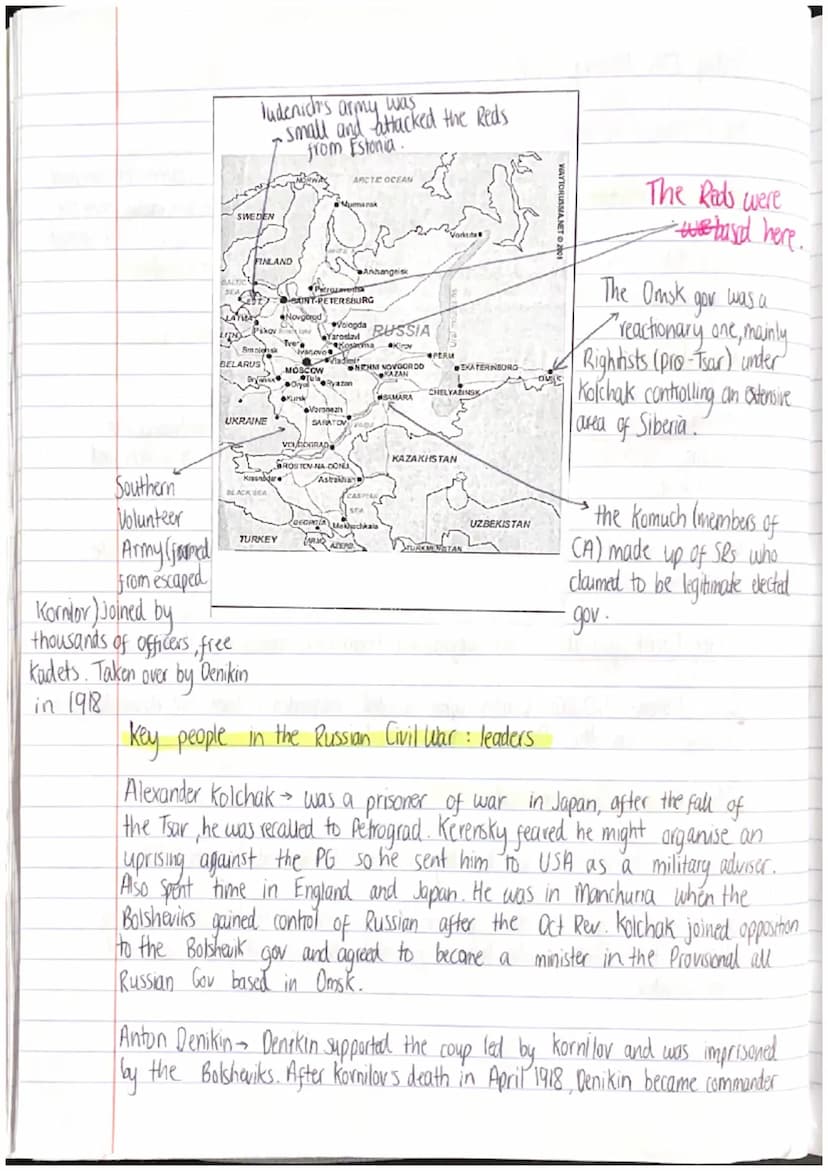 Iudenich's army was
small and attacked the Reds
from Estonia.
WAYTORUSSIA.NET © 2001
NORWAY
ARCTIC OCEAN
Murmansk
SWEDEN
Vorkuta
FINLAND
Arhangelsk
BALTIC
SEA
Petrozavodsk
SAINT-PETERSBURG
LATVIA
Novgorod
Pskov
Vologda
RUSSIA
Ural mountains
LITH
Tver
Yaroslavl
Kostroma
Kirov
Smolensk
Ivanovo
Vladimir
PERM
BELARUS
MOSCOW
NIZHNI NOVGOROD
EKATERINBURG
KAZAN
OMSK
Bryansk
Tula
Oryol
Ryazan
CHELYABINSK
Kursk
SAMARA
Voronezh
UKRAINE
SARATOV
VOLGOGRAD
KAZAKHSTAN
ROSTOV-NA-DONU
Krasnodar
Astrakhan
BLACK SEA
CASPIAN
SEA
GEORGIA
Makhachkala
UZBEKISTAN
TURKEY
AZERB
TURKMENISTAN
The Reds were
based here.
The Omsk gov was a
reactionary one, mainly
Rightists (pro-Tsar) under
Kolchak controlling an extensive
area of Siberia.
the Komuch (members of
CA) made up of SRs who
claimed to be legitimate elected
gov.
Southern
Volunteer
Army (formed
from escaped
Kornilov) joined by
thousands of officers, free
Kadets. Taken over by Denikin
in 1918
Key people in the Russian Civil War : leaders
Alexander Kolchak → was a prisoner of war in Japan, after the fall of
the Tsar, he was recalled to Petrograd. Kerensky feared he might organise an
uprising against the PG so he sent him to USA as a military adviser.
Also spent time in England and Japan. He was in Manchuria when the
Bolsheviks gained control of Russian after the Oct Rev. Kolchak joined opposition
to the Bolshevik gov and agreed to become a minister in the Provisional all
Russian Gov based in Omsk.
Anton Denikin → Denikin supported the coup led by Kornilov and was imprisoned
by the Bolsheviks. After Kornilov's death in April 1918, Denikin became commander